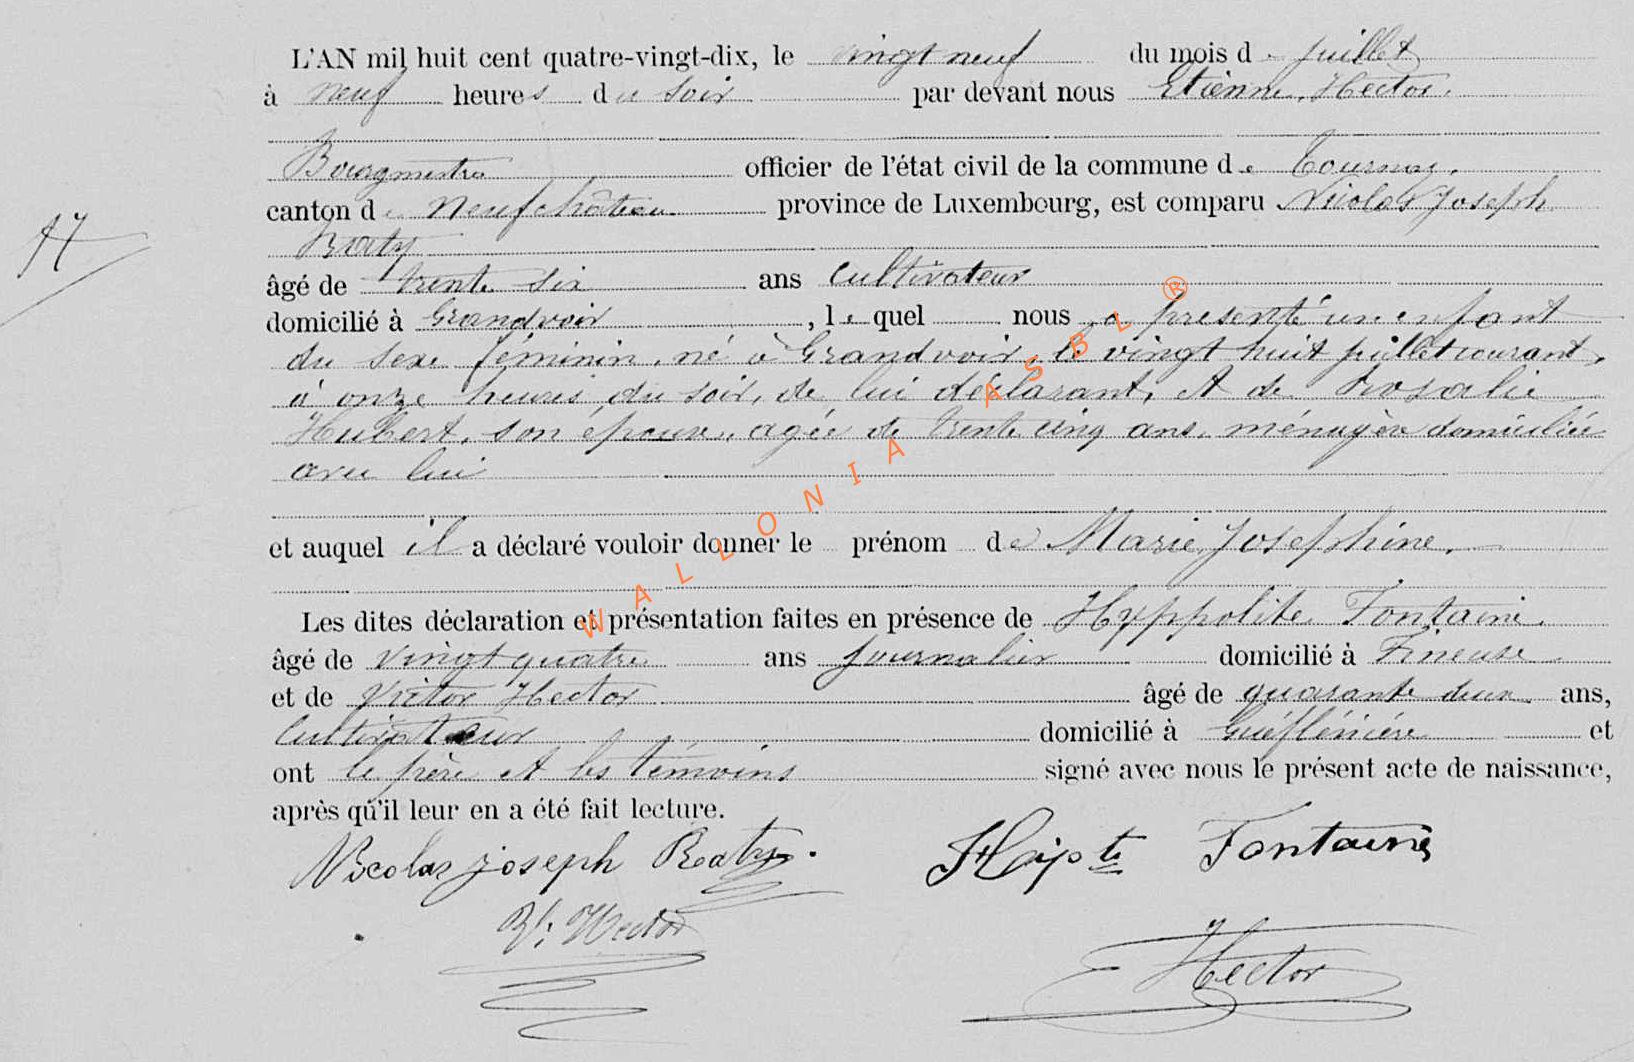 L'AN mil huit cent quatre-vingt-dix, le vingt neuf du mois de juillet
à neuf heures du soir par devant nous Etienne, Hector,
Bourgmestre officier de l'état civil de la commune de Tournay,
canton de Neufchâteau province de Luxembourg, est comparu Nicolas Joseph
17
Baty
âgé de trente six ans cultivateur
domicilié à Grandvoir, lequel nous a présenté un enfant
du sexe féminin, né à Grandvoir, le vingt huit juillet courant,
à onze heures du soir, de lui déclarant, et de Rosalie
Hubert, son épouse, agée de trente cinq ans, ménagère domiciliée
avec lui
et auquel il a déclaré vouloir donner le prénom de Marie Josephine.
Les dites déclaration et présentation faites en présence de Hyppolite Fontaine
âgé de vingt quatre ans journalier domicilié à Tineuse
et de Victor Hector âgé de quarante deux ans,
cultivateur domicilié à et
ont le père et les témoins signé avec nous le présent acte de naissance,
après qu'il leur en a été fait lecture.
Nicolas joseph Baty. Hypte Fontaine
Vr: Hector
E Hector
WALLONIA ASBL ®